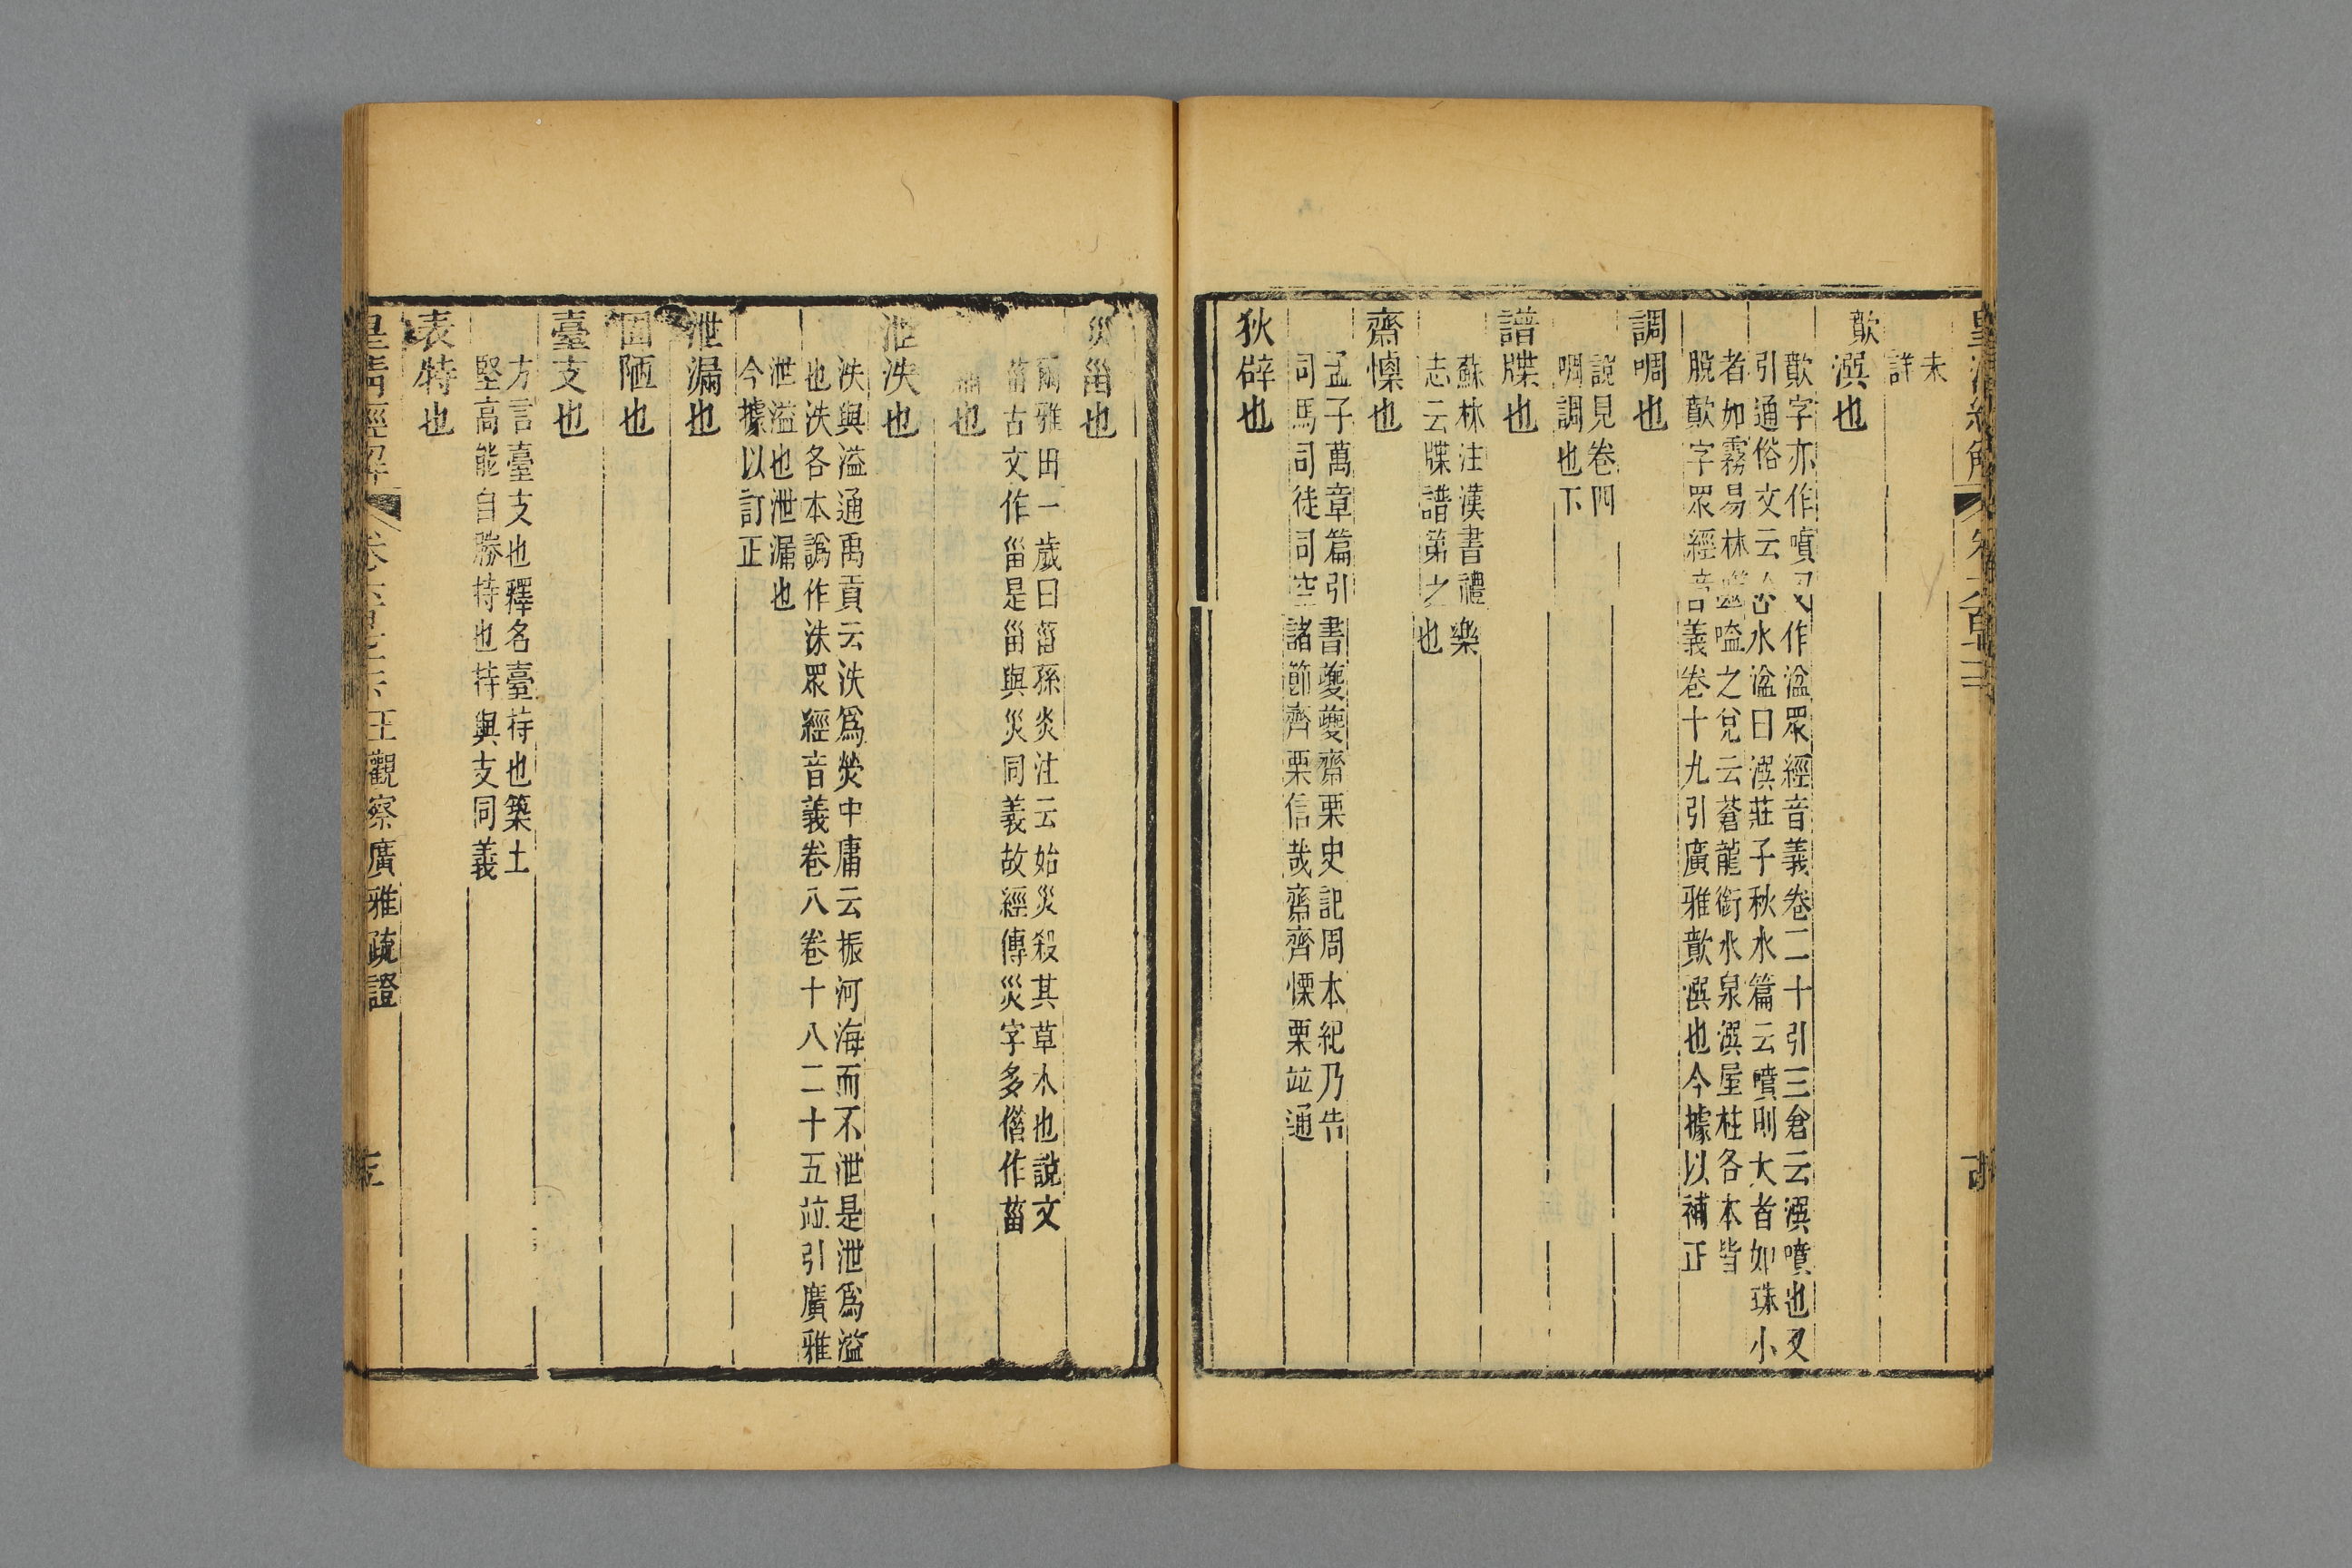 未
詳
歕潠也
歕字亦作噴又作湓眾經音義卷二十引三倉云潠噴也又
引通俗文云含水湓曰潠莊子秋水篇云噴則大者如珠小
者如霧易林噬嗑之兌云蒼龍銜水泉潠屋柱各本皆
脫歕字眾經音義卷十九引廣雅歕潠也今據以補正
調啁也
說見卷四
啁調也下
譜牒也
蘇林注漢書禮樂
志云牒譜第之也
齋懍也
孟子萬章篇引書夔夔齋栗史記周本紀乃告
司馬司徒司空諸節齊栗信哉齋齊慄栗竝通
狄辟也
災甾也
爾雅田一歲曰菑孫炎注云始災殺其草木也說文
菑古文作甾是甾與災同義故經傳災字多借作菑
也
泄泆也
泆與溢通禹貢云泆爲熒中庸云振河海而不泄是泄爲溢
也泆各本譌作洙眾經音義卷八卷十八二十五竝引廣雅
泄溢也泄漏也
今據以訂正
泄漏也
陋也
臺支也
方言臺支也釋名臺持也築土
堅高能自勝持也持與支同義
表特也
皇清經解 王觀察廣雅疏證